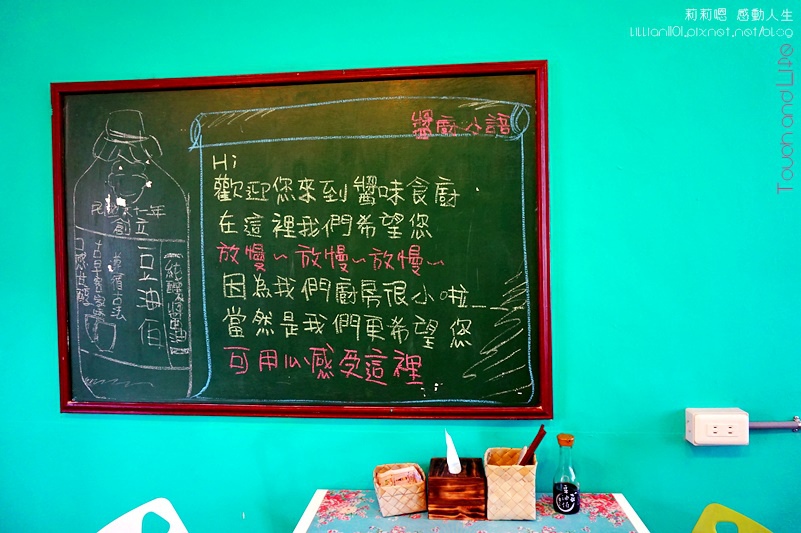 莉莉嗯 感動人生
Lillian1101.pixnet.net/blog
Touch and Life
醬廚小語
Hi
歡迎您來到醬味食廚.
在這裡我們希望您
放慢~放慢~放慢~
因為我們廚房很小啦__
當然是我們更希望您
可用心感受這裡
創立
豆油伯